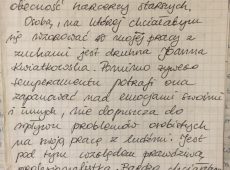 obecność harcerzy starszych.
Osobą, na której chciałabym
się wzorować w mojej pracy z
zuchami jest druhna Joanna
Kwiatkowska. Pomimo żywego
temperamentu potrafi ona
zapanować nad emocjami swoimi
i innych, nie dopuszcza do
wpływu problemów osobistych
na swoją pracę z ludźmi. Jest
pod tym względem prawdziwą
profesjonalistką. Bardzo chciałabym